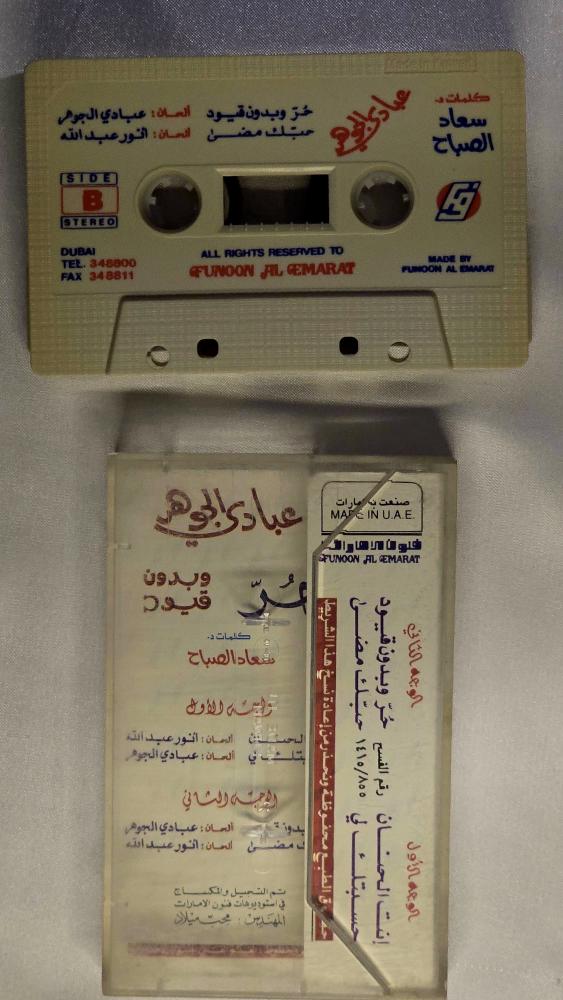 كلمات د.
سعاد
الصباح
عبادي الجوهر
حُرّ وبدون قيود ألحان: عبادي الجوهر
حبّك مضى ألحان: أنور عبد الله
SIDE
B
STEREO
DUBAI
TEL. 348800
FAX 348811
ALL RIGHTS RESERVED TO
FUNOON AL EMARAT
MADE BY
FUNOON AL EMARAT
عبادي الجوهر
حُرّ
وبدون
قيود
كلمات د.
سعاد الصباح
الوجه الأول
ألحان: أنور عبد الله
ألحان: عبادي الجوهر
الوجه الثاني
ألحان: عبادي الجوهر
مضى ألحان: أنور عبد الله
تم التسجيل والمكساج
في استوديوهات فنون الامارات
المهندس: محب ميلاد
صنعت بـ إمارات
MADE IN U.A.E.
فنون الامارات
FUNOON AL EMARAT
الوجه الثاني
حُرّ وبدون قيود
حبّك مضى
رقم الفسح ١٤١٥/٨٥٥
الوجه الأول
إنت الحنان
حسبتك لي
حقوق الطبع محفوظة ونحذر من إعادة نسخ هذا الشريط